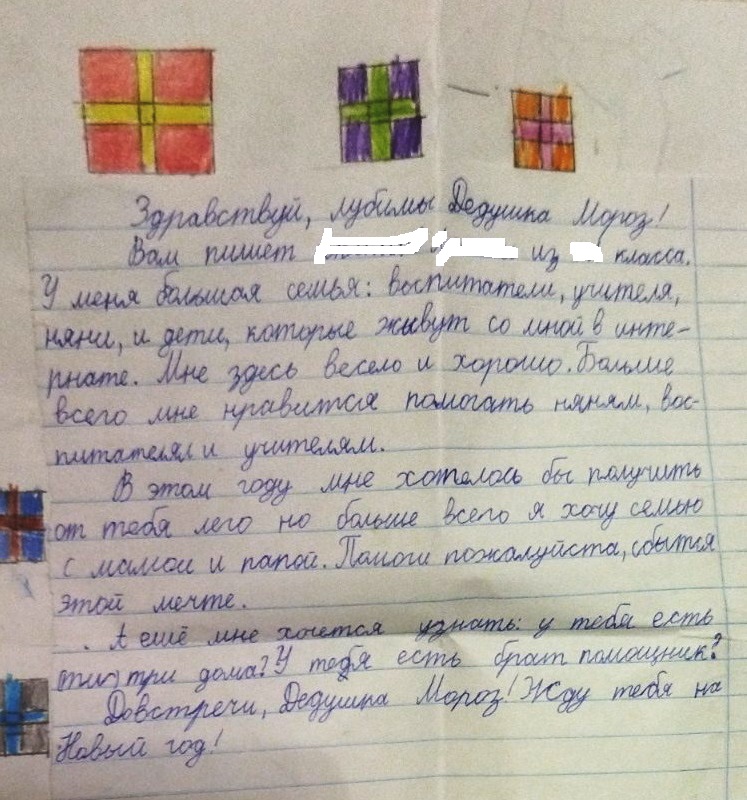 Здравствуй, любимы Дедушка Мороз!
Вам пишет из класса.
У меня большая семья: воспитатели, учителя,
няни, и дети, которые живут со мной в инте-
рнате. Мне здесь весело и хорошо. Больше
всего мне нравится помогать няням, вос-
питателям и учителям.
В этом году мне хотелось бы получить
от тебя лего но больше всего я хочу семью
с мамои и папой. Помоги пожалуйста, сбытся
этой мечте.
А ещё мне хочется узнать: у тебя есть
три дома? У тебя есть брат помощник?
Довстречи, Дедушка Мороз! Жду тебя на
Новый год!